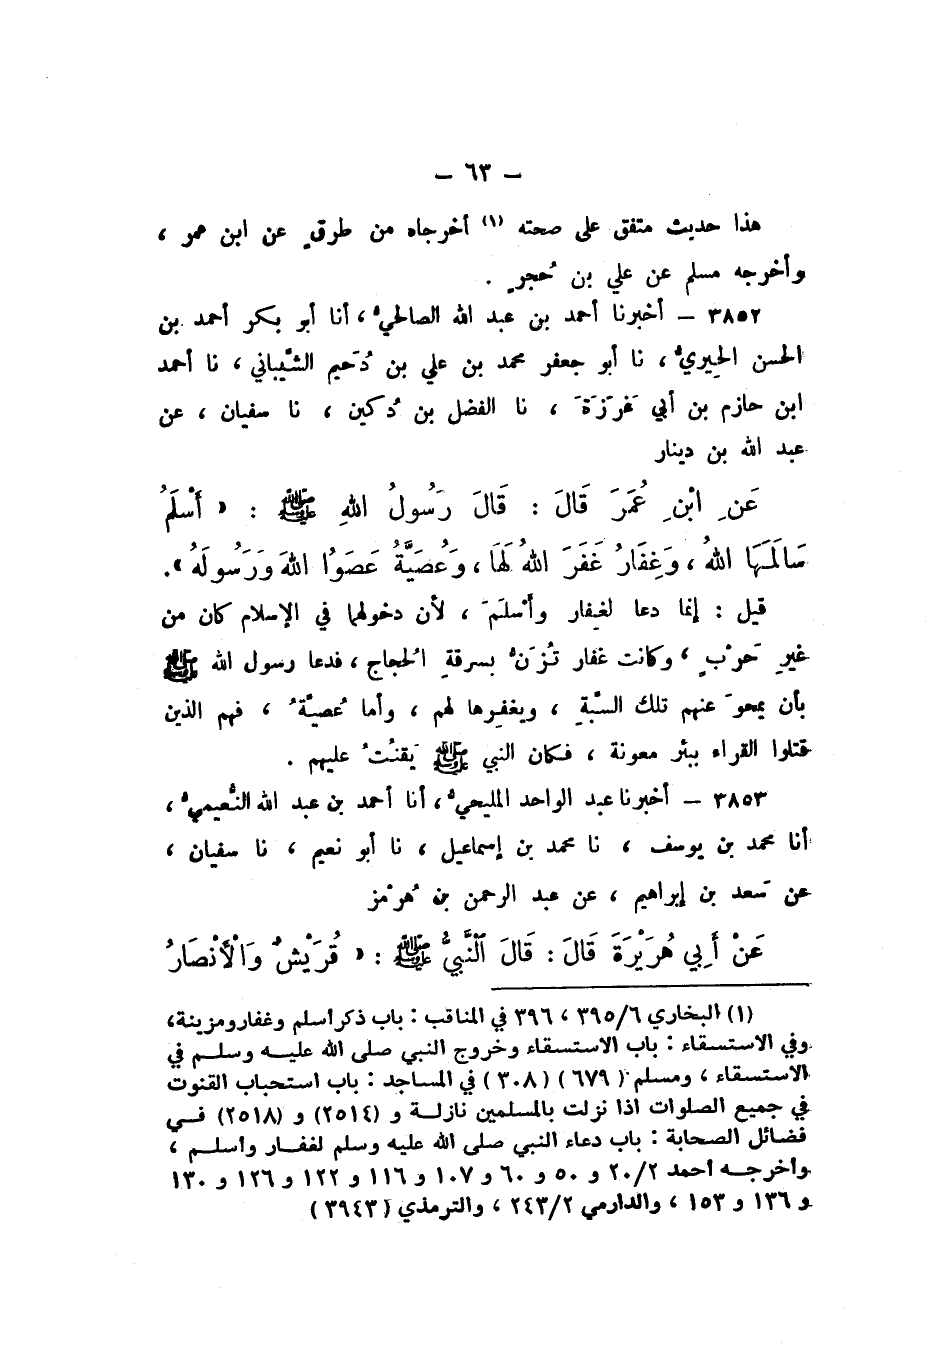 – ٦٣ –
هذا حديث متفق على صحته (١) أخرجاه من طرقٍ عن ابن عمر ،
وأخرجه مسلم عن علي بن حُجرٍ .
٣٨٥٢ – أخبرنا أحمد بن عبد الله الصالحيُّ ، أنا أبو بكر أحمد بن
الحسن الحِيريُّ ، نا أبو جعفر محمد بن علي بن دُحَيم الشَّيباني ، نا أحمد
ابن حازم بن أبي غَرَزَةَ ، نا الفضل بن دُكين ، نا سفيان ، عن
عبد الله بن دينار
عَنِ ابْنِ عُمَرَ قَالَ : قَالَ رَسُولُ اللهِ ﷺ : « أَسْلَمُ
سَالَمَهَا اللهُ ، وَغِفَارُ غَفَرَ اللهُ لَهَا ، وَعُصَيَّةُ عَصَوُا اللهَ وَرَسُولَهُ » .
قيل : إنما دعا لغفار وأسْلَمَ ، لأن دخولهما في الإسلام كان من
غيرِ حَرْبٍ ، وكانت غفار تُزَنُّ بسرقةِ الحُجاج ، فدعا رسول الله ﷺ
بأن يمحوَ عنهم تلك السُّبَّةِ ، ويغفِرها لهم ، وأما عُصيَّةُ ، فهم الذين
قتلوا القراء ببئر معونة ، فكان النبي ﷺ يَقنُتُ عليهم .
٣٨٥٣ – أخبرنا عبد الواحد المليحيُّ ، أنا أحمد بن عبد الله النُّعيميُّ ،
أنا محمد بن يوسف ، نا محمد بن إسماعيل ، نا أبو نعيم ، نا سفيان ،
عن سَعد بن إبراهيم ، عن عبد الرحمن بن هُرْمُز
عَنْ أَبِي هُرَيْرَةَ قَالَ : قَالَ النَّبِيُّ ﷺ : « قُرَيْشٌ وَالْأَنْصَارُ
(١) البخاري ٣٩٥/٦ ، ٣٩٦ في المناقب : باب ذكر أسلم وغفار ومزينة،
وفي الاستسقاء : باب الاستسقاء وخروج النبي صلى الله عليه وسلم في
الاستسقاء ، ومسلم (٦٧٩) (٣٠٨) في المساجد : باب استحباب القنوت
في جميع الصلوات اذا نزلت بالمسلمين نازلة و (٢٥١٤) و (٢٥١٨) في
فضائل الصحابة : باب دعاء النبي صلى الله عليه وسلم لغفار وأسلم ،
وأخرجه أحمد ٢٠/٢ و ٥٠ و ٦٠ و ١٠٧ و ١١٦ و ١٢٢ و ١٢٦ و ١٣٠
و ١٣٦ و ١٥٣ ، والدارمي ٢٤٣/٢ ، والترمذي (٣٩٤٣)